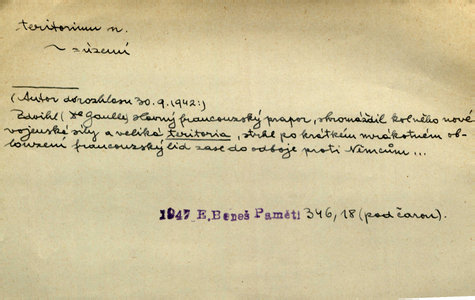 teritorium n.
~ území
(Autor do rozhlasu 30.9.1942:)
Zdvihl (De Gaulle) slavný francouzský prapor, shromáždil kol něho nové
vojenské síly a veliká teritoria, strhl po krátkém mrákotném ob-
louzení francouzský lid zase do odboje proti Němcům ...
1947 E. Beneš Paměti 346, 18 (pod čarou).